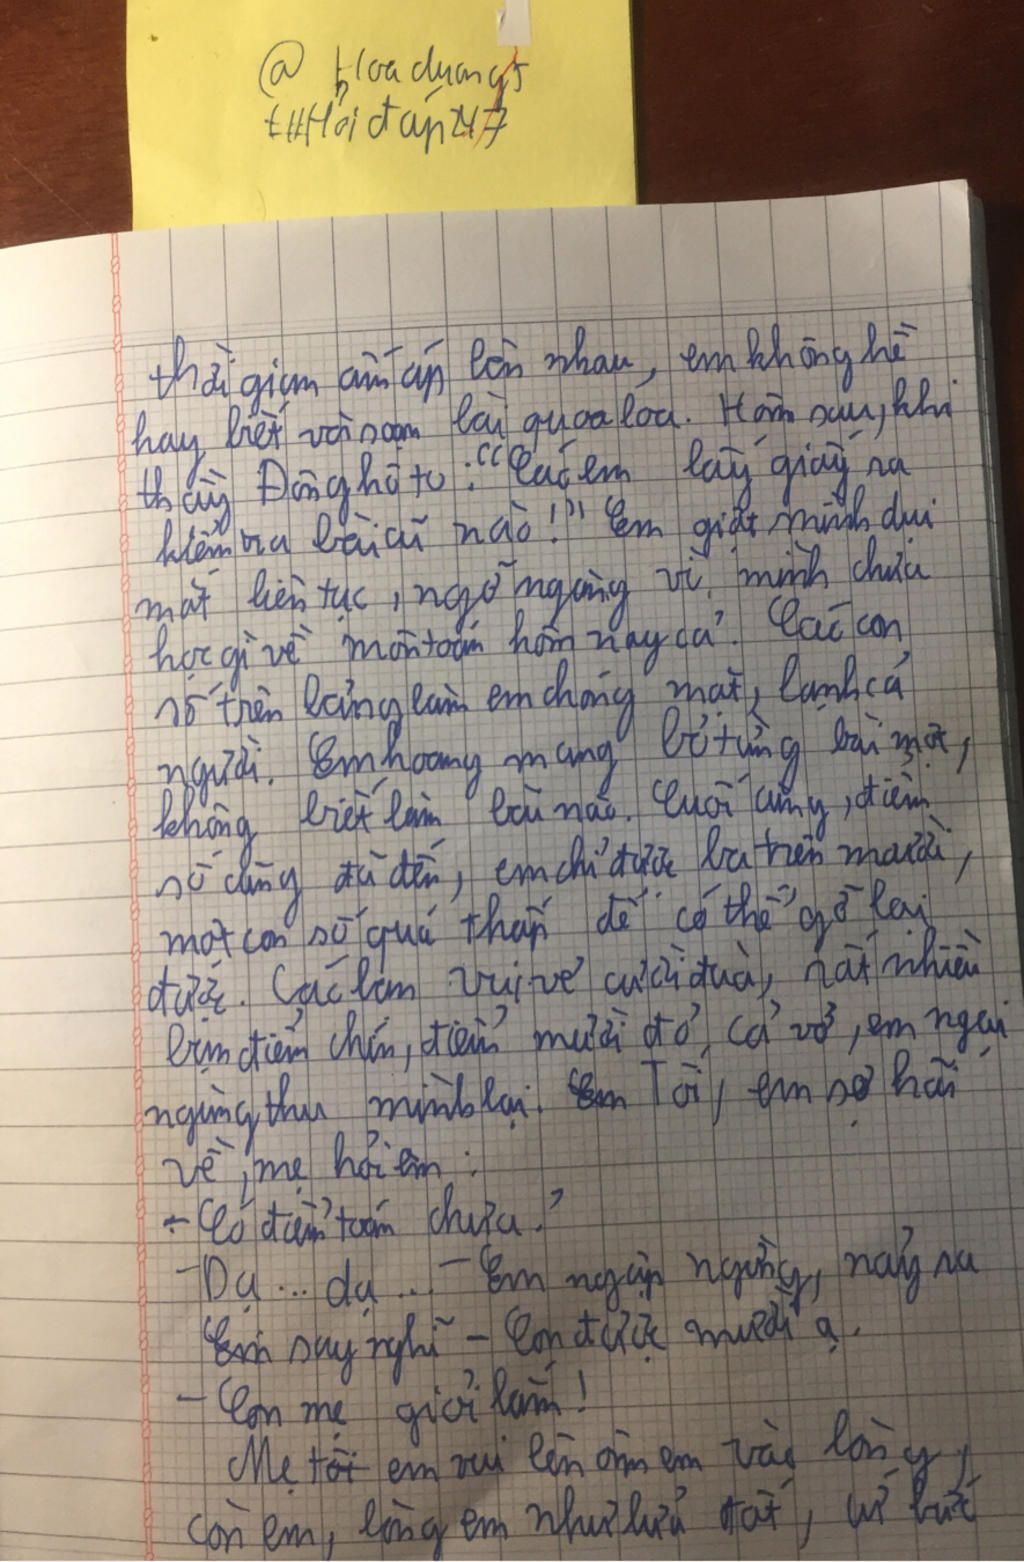 @ Hoaduong5
t#Hỏiđáp247
thời gian ầm ập lên nhau, em không hề
hay biết vời soạn bài qua loa. Hôm sau, khi
thầy Đông hô to: "Các em lấy giấy ra
kiểm tra bài cũ nào!" Em giật mình dụi
mắt liên tục, ngỡ ngàng vì mình chưa
học gì về môn toán hôm nay cả. Các con
số trên bảng làm em chóng mặt, lạnh cả
người. Em hoang mang bỏ từng bài một,
không biết làm bài nào. Cuối cùng, điểm
số cũng đã đến, em chỉ được ba trên mười,
một con số quá thấp để có thể gỡ lại
được. Các bạn vui vẻ cười đùa, rất nhiều
bạn điểm chín, điểm mười đỏ cả vở, em ngại
ngùng thu mình lại. Tối, em sợ hãi
về, mẹ hỏi em:
- Có điểm toán chưa?
- Dạ... dạ... - Em ngập ngừng, nảy ra
suy nghĩ - Con được mười ạ.
- Con mẹ giỏi lắm!
Mẹ em vui lên ôm em vào lòng,
còn em, lòng em như lửa đốt, cứ bứt